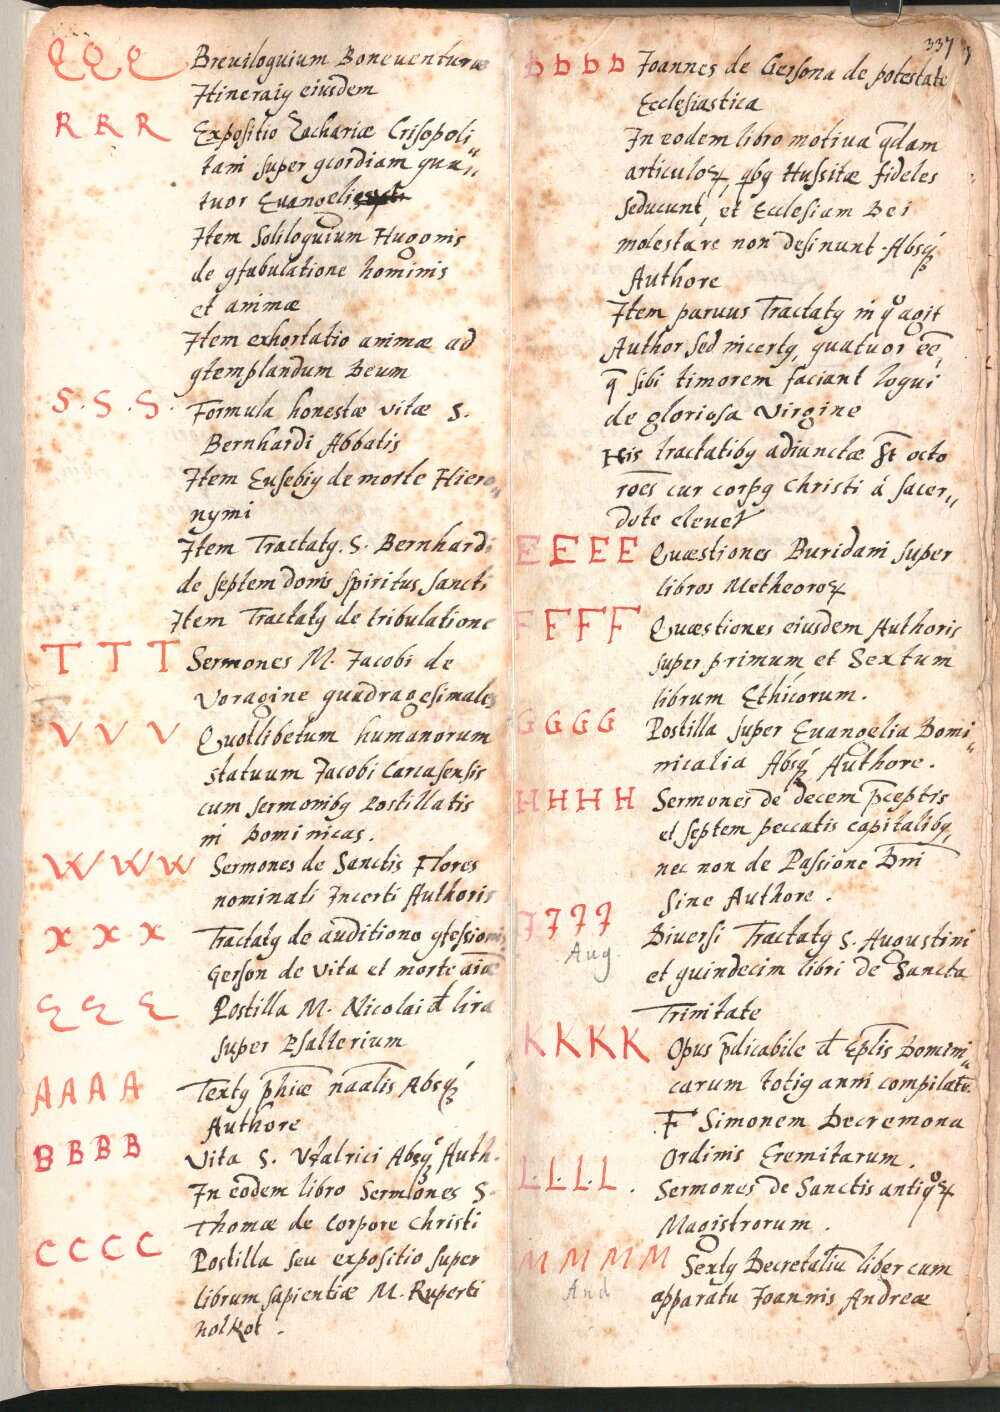 Q Q Q Breuiloquium Boneuenturæ
Itinerariꝰ eiusdem
R R R Expositio Zachariæ Crisopoli
tani super ꝯcordiam qua„
tuor Euangelie
Item Soliloquium Hugonis
de ꝯfabulatione hominis
et animæ
Item exhortatio animæ ad
ꝯtemplandum Deum
S. S. S. Formula honestæ vitæ S.
Bernhardi Abbatis
Item Eusebiꝰ de morte Hiero„
nymi
Item Tractatꝰ. S. Bernhardi
de septem donis spiritus sancti
Item Tractatꝰ de tribulatione
T T T Sermones M. Jacobi de
Voragine quadragesimales
V V V Quotlibetum humanorum
statuum Jacobi Carcasensis
cum sermonibꝰ Postillatis
in Dominicas.
W W W Sermones de Sanctis Flores
nominati Incerti Authoris
X X X Tractatꝰ de auditione ꝯfession
Gerson de vita et morte aiæ
Z Z Z Postilla M. Nicolai d lira
super Psalterium
A A A A Textꝰ phiæ naalis Absqꝫ
Authore
B B B B Vita S. Vdalrici Absqꝫ Auth.
In eodem libro Sermones S.
Thomæ de Corpore Christi
C C C C Postilla seu expositio super
librum sapientiæ M. Ruperti
holkot.
337
D D D D Joannes de Gersona de potestate
Ecclesiastica
In eodem libro motiua qdam
articuloꝝ, qbꝰ Hussitæ fideles
seducunt, et Ecclesiam Dei
molestare non desinunt. Absqꝫ
Authore
Item paruus Tractatꝰ in qo agit
Author sed incertꝰ, quatuor eē,
q̄ sibi timorem faciant loqui
de gloriosa Virgine
His tractatibꝰ adiunctæ st octo
roēs cur corpꝰ Christi á sacer„
dote eleuet
E E E E Quæstiones Buridani super
libros Metheoroꝝ
F F F F Quæstiones eiusdem Authoris
super primum et Sextum
librum Ethicorum.
G G G G Postilla super Euangelia Domi„
nicalia Absqꝫ Authore.
H H H H Sermones de decem pceptis
et septem peccatis capitalibꝰ,
nec non de Passione Dni
Sine Authore.
J J J J Diuersi Tractatꝰ S. Augustini
Aug.
et quindecim libri de Sancta
Trinitate
K K K K Opus p̄dicabile d Epl̄is Domini„
carum totiꝰ anni compilatū
F Simonem Decremona
Ordinis Eremitarum.
L. L. L. L. Sermones de Sanctis antiqoꝝ
Magistrorum.
M M M M Sextꝰ Decretaliū liber cum
And
apparatu Joannis Andreæ